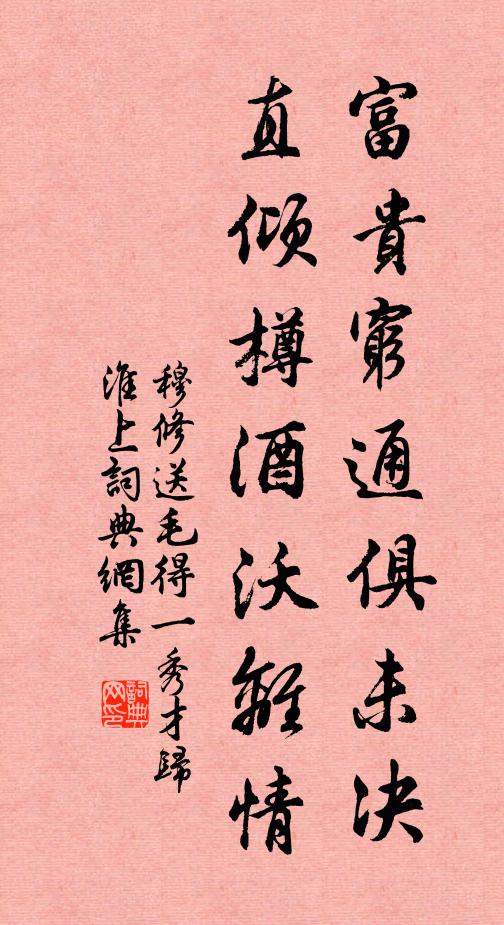 富貴窮通俱未決
直傾樽酒沃離情
穆修送毛得一秀才歸
淮上詞典網集
詞典网印